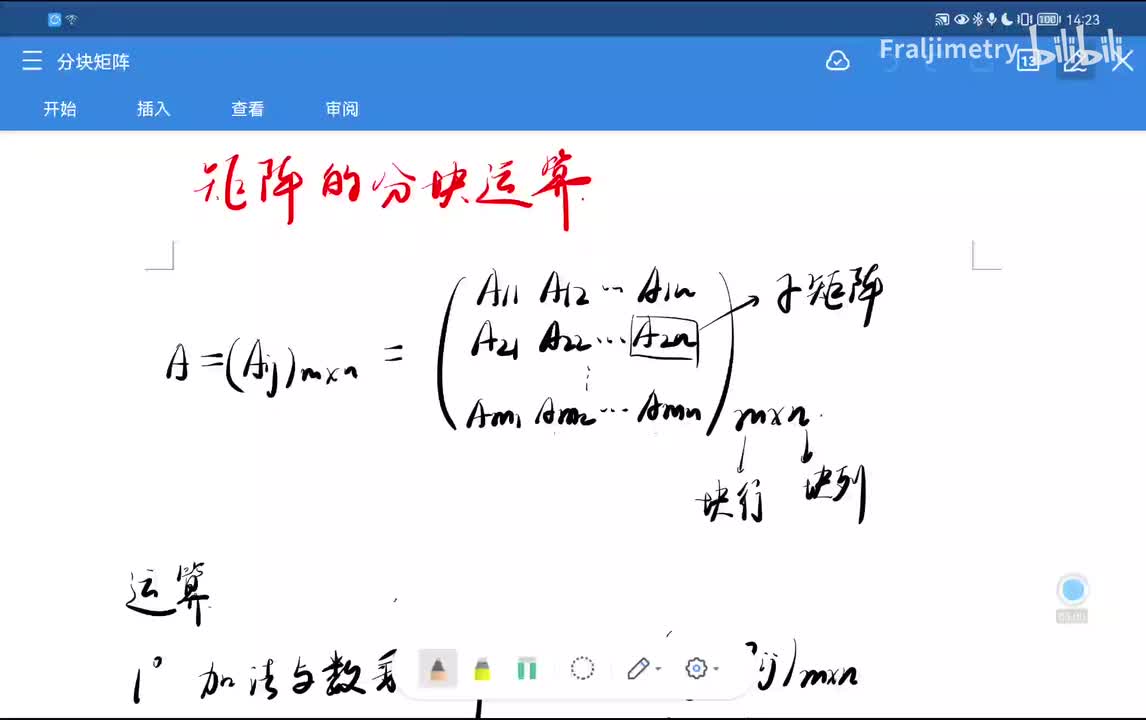 14:23
分块矩阵
Fraljimetry bilibili
13
开始 插入 查看 审阅
矩阵的分块运算
A = (Aij)m×n = ( A11 A12 ⋯ A1n
A21 A22 ⋯ A2n → 子矩阵
⋮
Am1 Am2 ⋯ Amn )m×n
块行 块列
运算
1° 加法与数乘 ij)m×n